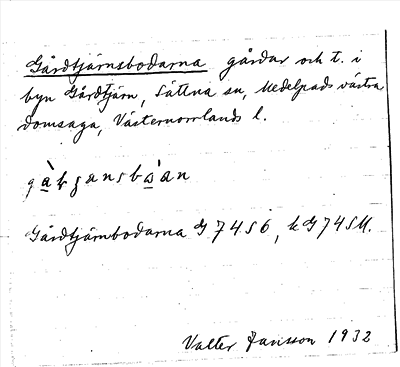 Gårdtjärnsbodarna gårdar och t. i
byn Gårdtjärn, Sättna sn, Medelpads västra
domsaga, Västernorrlands l.
Gårdtjärnbodarna G 7456, k G 745M.
Valter Jansson 1932